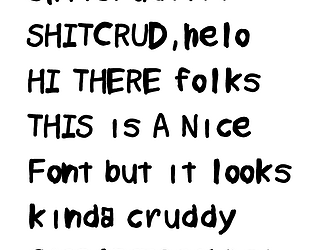 SHITCRUD,helo
HI THERE folks
THIS is A Nice
Font but it looks
kinda cruddy